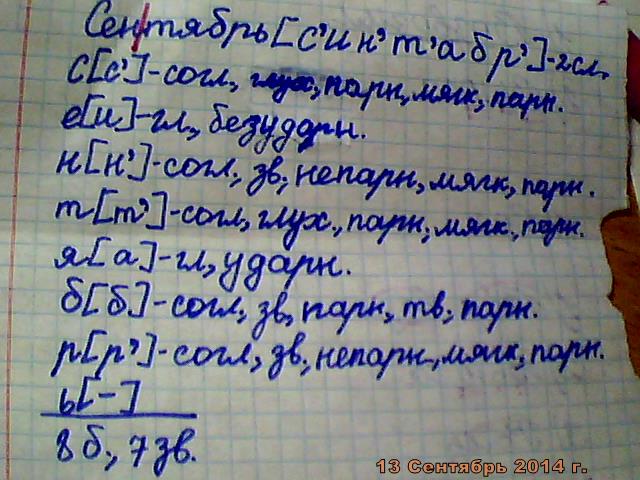 Сентябрь [с'ин'т'абр'] - 2 сл.
С [с'] - согл, глух, парн, мягк, парн.
е [и] - гл, безударн.
н [н'] - согл, зв, непарн, мягк, парн.
т [т'] - согл, глух., парн, мягк, парн.
я [а] - гл, ударн.
б [б] - согл, зв, парн, тв, парн.
р [р'] - согл, зв, непарн, мягк, парн.
ь [-]
8 б, 7 зв.
13 Сентябрь 2014 г.